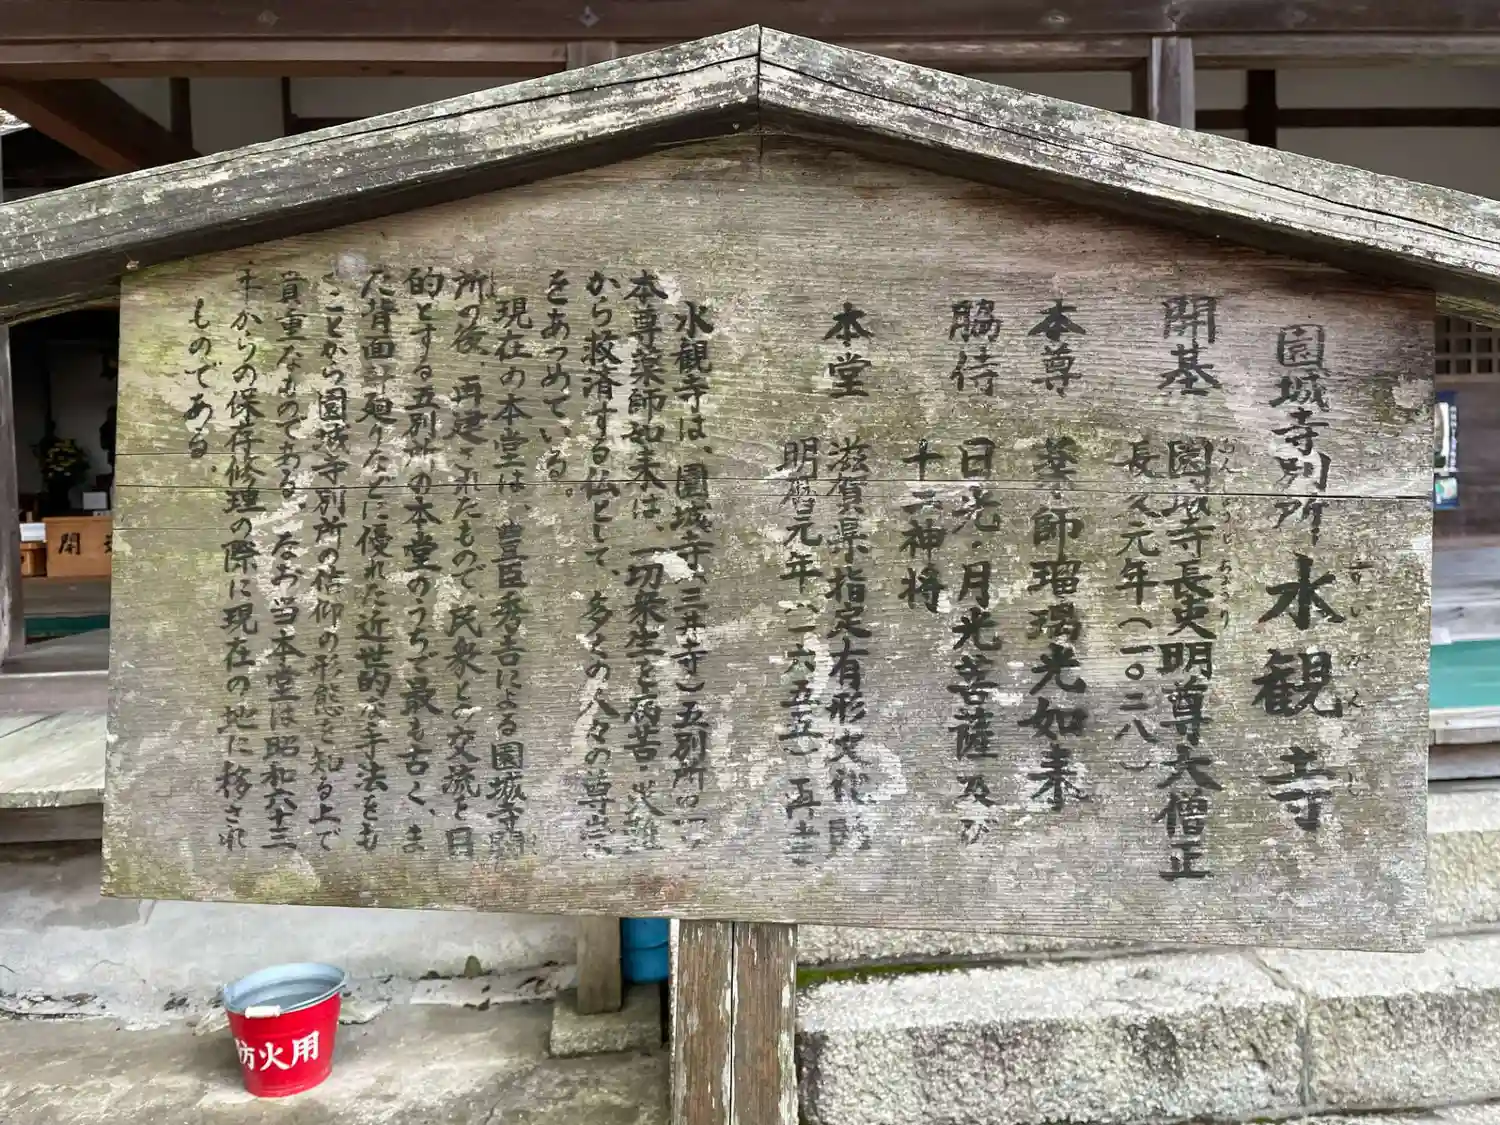 園城寺別所 水観寺
すいかんじ
開基 園城寺長吏明尊大僧正
おんじょうじ ちょうり
長久元年(一〇二八)
本尊 薬師瑠璃光如来
脇侍 日光・月光菩薩及び
十二神将
本堂 滋賀県指定有形文化財
明暦元年(一六五五)再建
水観寺は、園城寺(三井寺)五別所の
本尊薬師如来は、一切衆生を病苦・災難
から救済する仏として、多くの人々の尊崇
をあつめている。
現在の本堂は、豊臣秀吉による園城寺闕
所の後、再建されたもので、民衆との交流を目
的とする五別所の本堂のうちで最も古く、ま
た背面に廻りなどに優れた近世的な手法をも
つことから園城寺別所の信仰の形態を知る上で
貴重なものである。なお当本堂は昭和六十三
年からの保存修理の際に現在の地に移され
ものである。
防火用
開